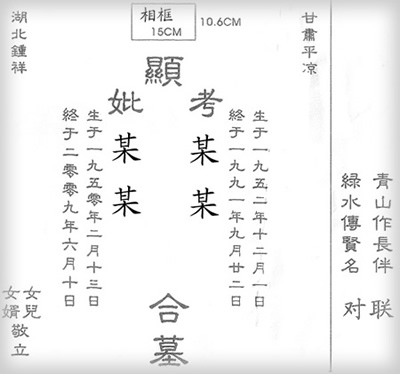 相框
15CM
10.6CM
青山作長伴
綠水傳賢名
联
对
甘肅平凉
生于一九五二年十二月一日
終于一九九一年九月廿二日
顯
考某某
妣某某
合墓
生于一九五零年二月十三日
終于二零零九年六月十日
湖北鍾祥
女兒
女婿
敬立